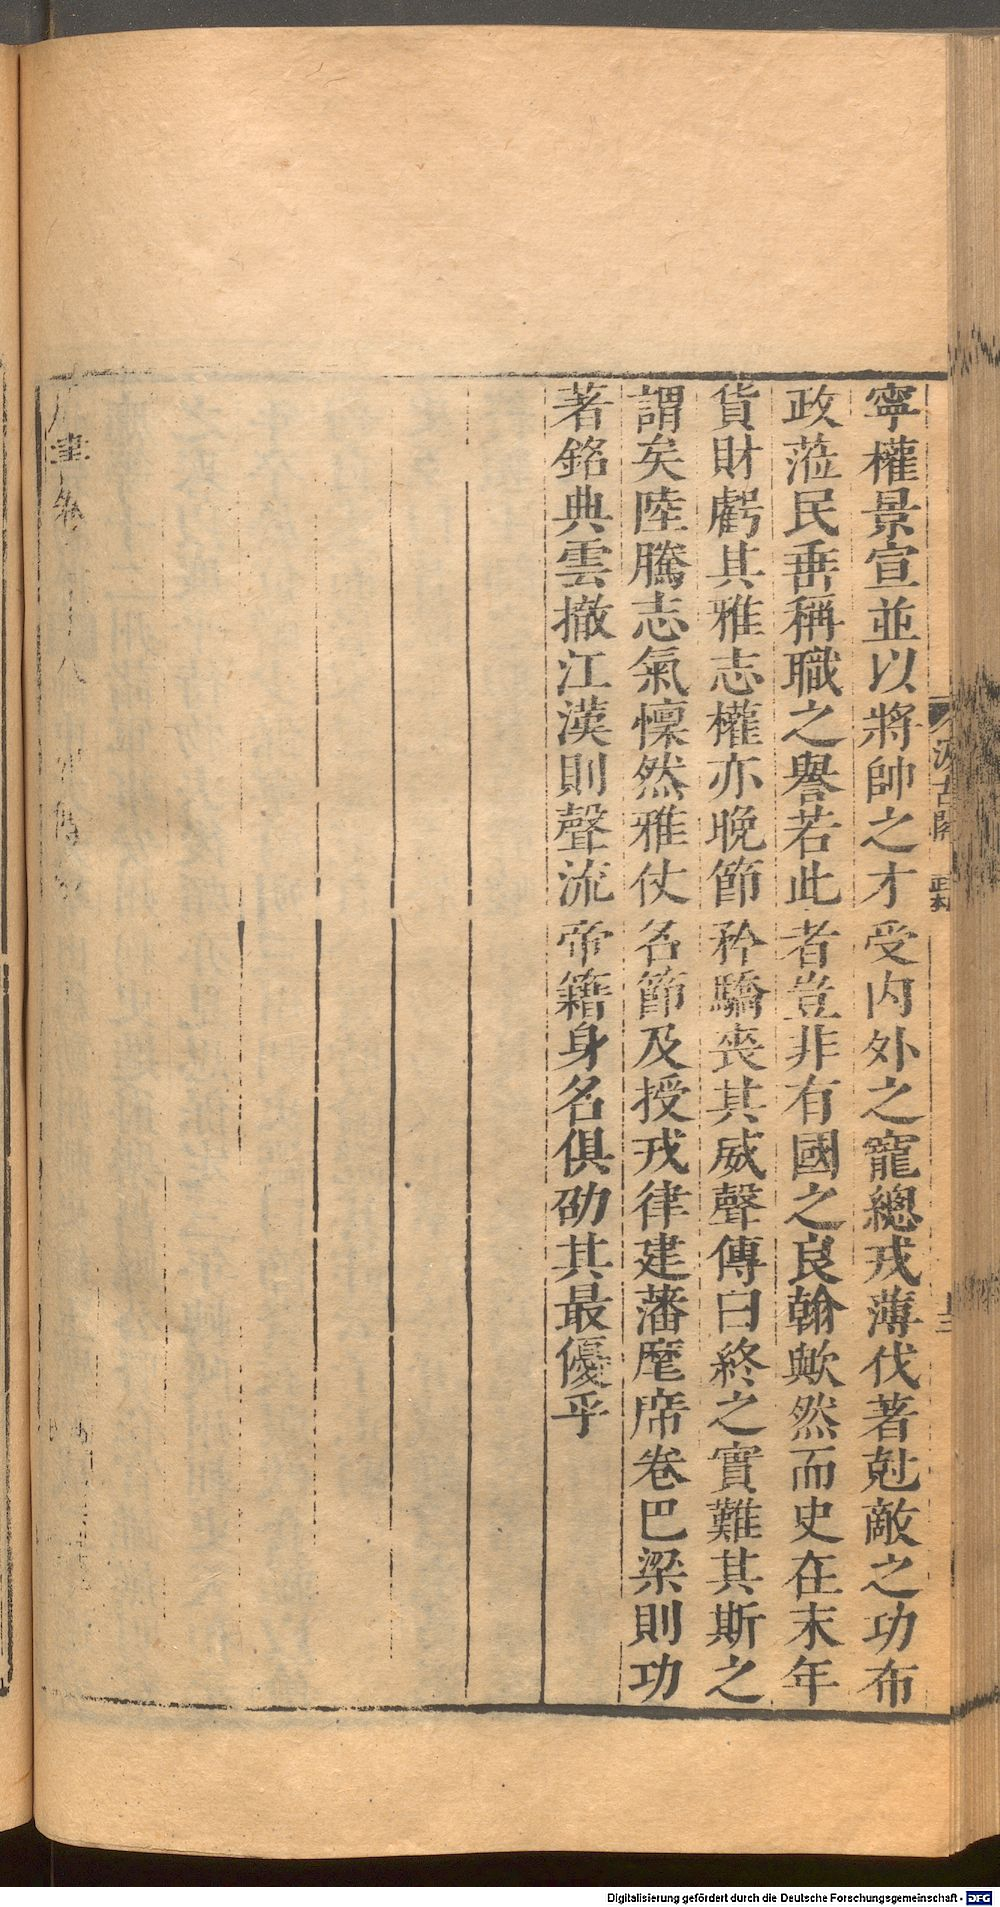 寧權景宣並以將帥之才受内外之寵總戎薄伐著尅敵之功布
政蒞民垂稱職之譽若此者豈非有國之良翰歟然而史在末年
貨財虧其雅志權亦晚節矜驕喪其威聲傳曰終之實難其斯之
謂矣陸騰志氣懍然雅仗名節及授戎律建藩麾席卷巴梁則功
著銘典雲撤江漢則聲流帝籍身名俱劭其最優乎
汲古閣
Digitalisierung gefördert durch die Deutsche Forschungsgemeinschaft - DFG